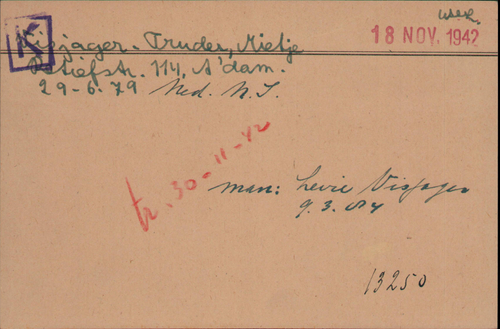 West.
18 NOV. 1942
K
Visjager-Truder, Mietje
Retiefstr. 114, A'dam.
29-6.79 Ned. N.I.
tr. 30-11-42
man: Levie Visjager
9.3.84
13250